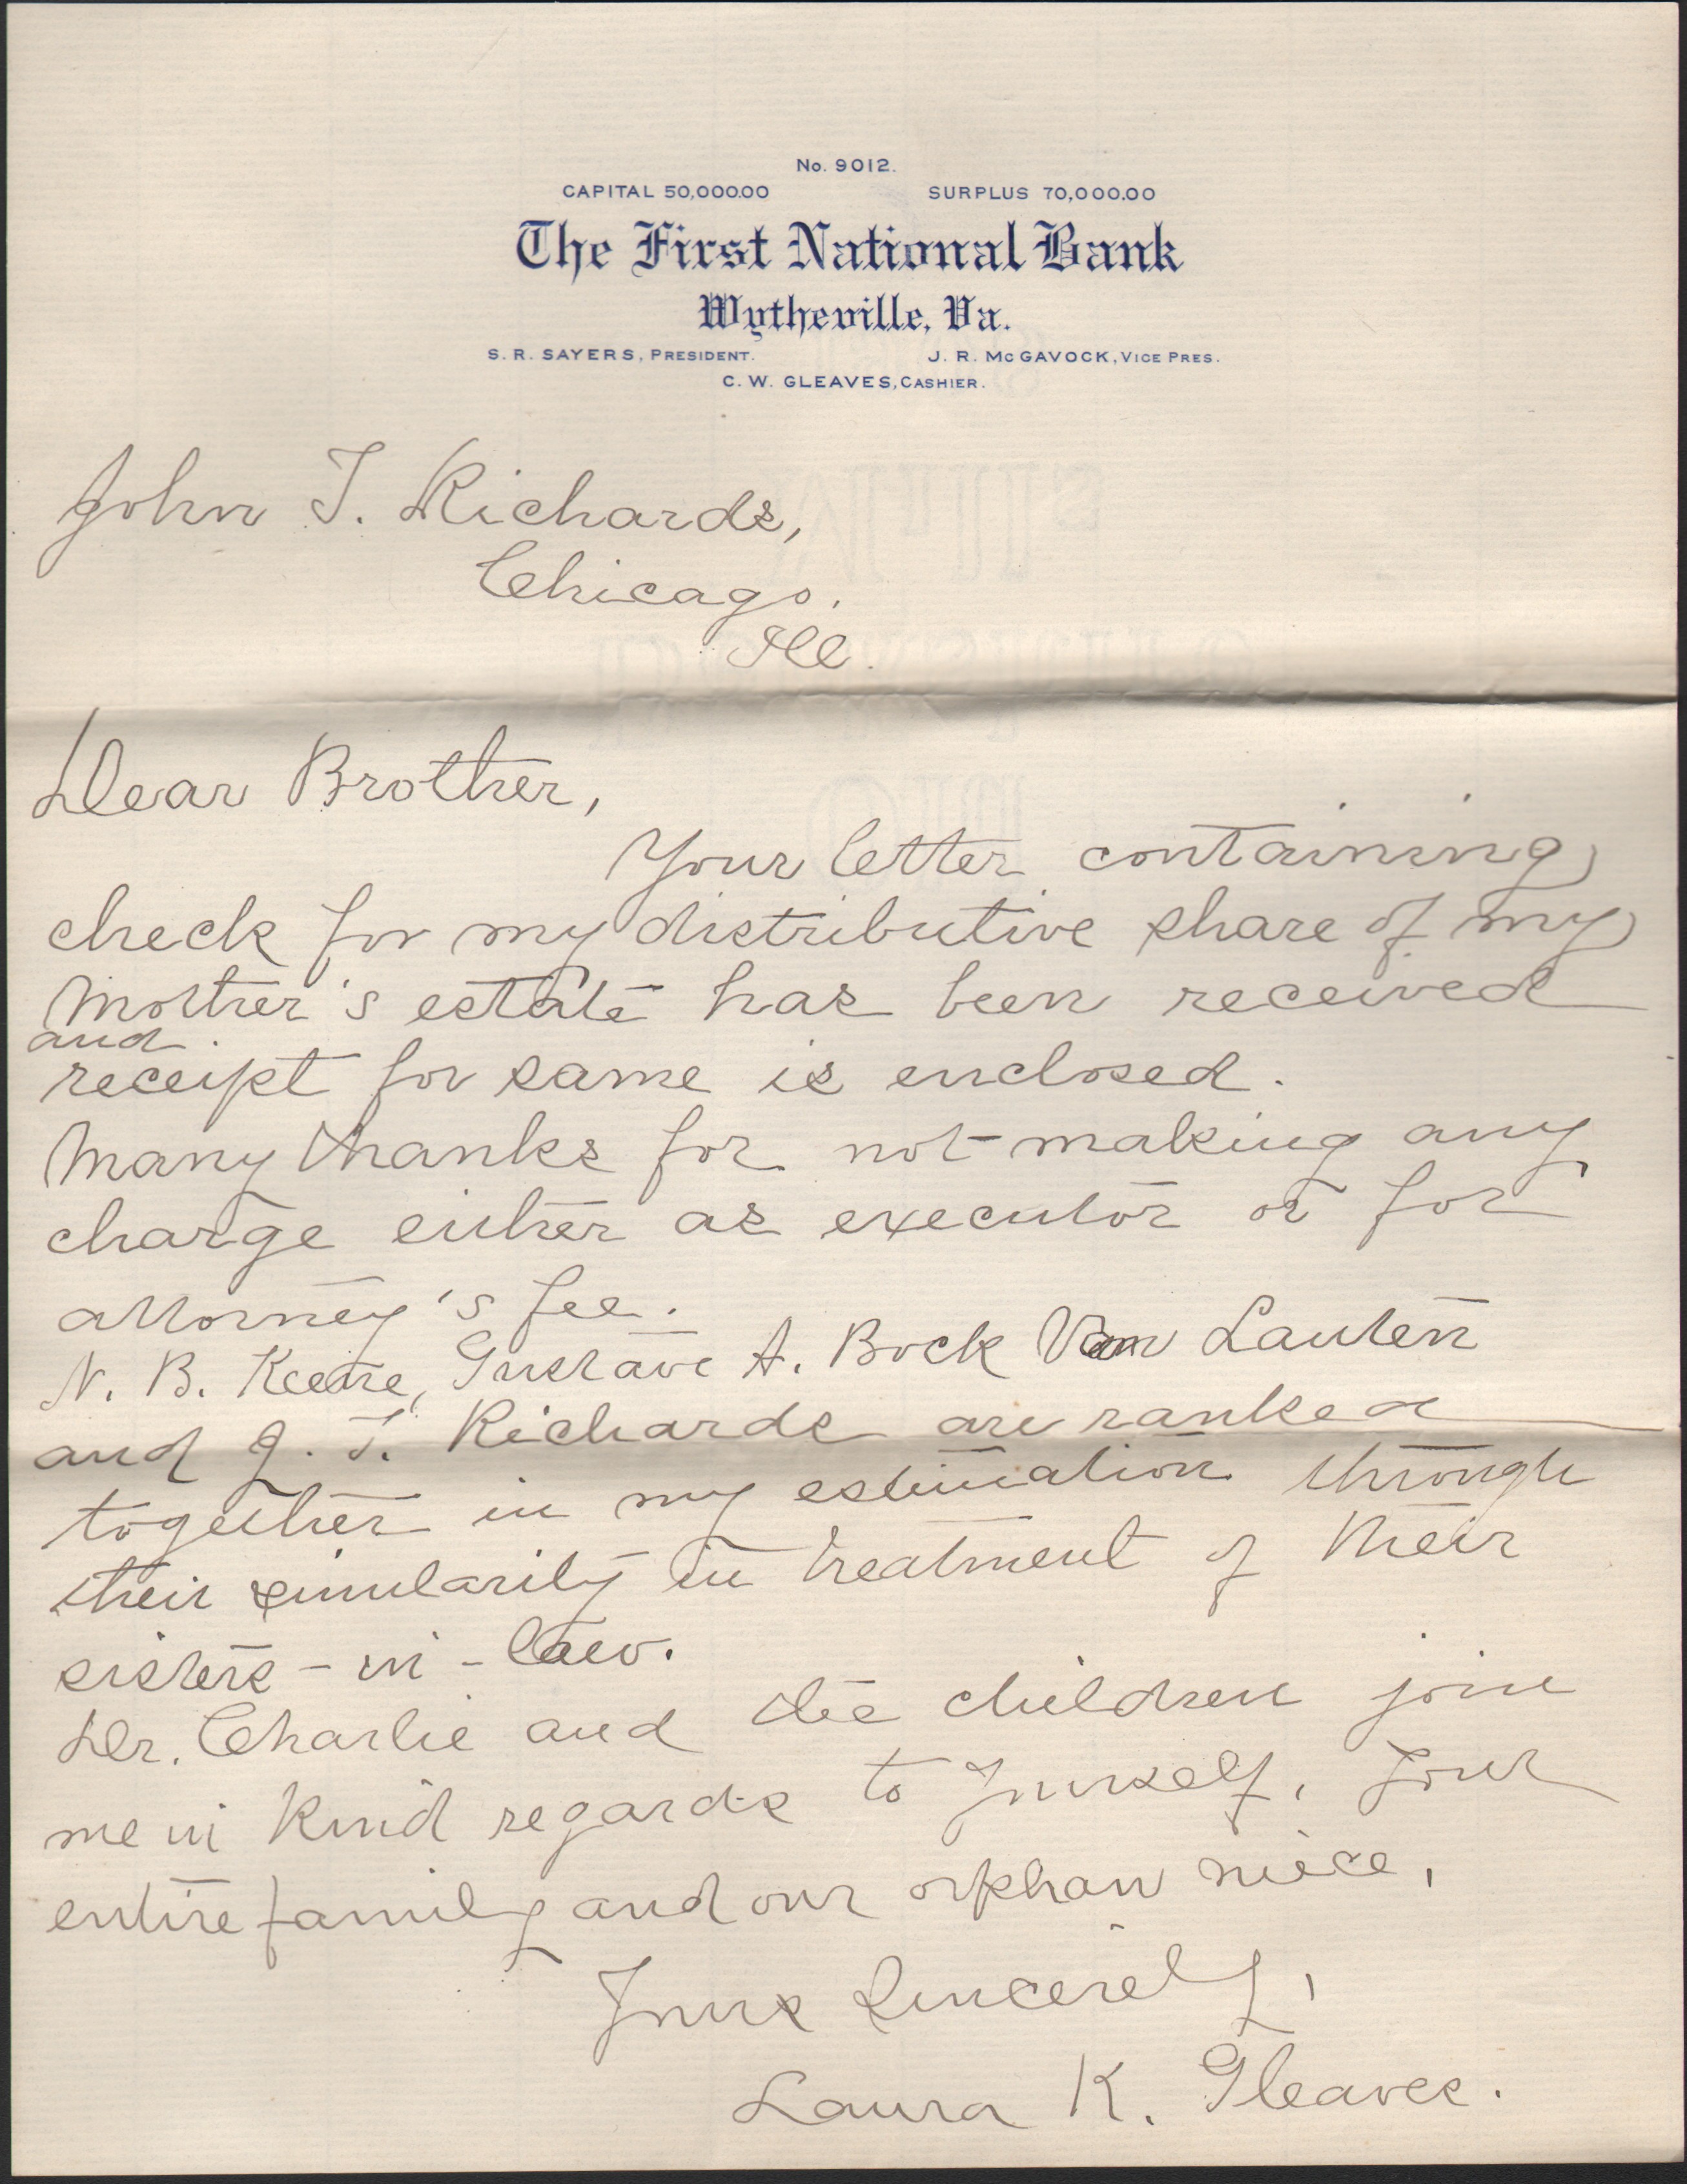 No. 9012.
CAPITAL 50,000.00 SURPLUS 70,000.00
The First National Bank
Wytheville, Va.
S. R. SAYERS, PRESIDENT. J. R. McGAVOCK, VICE PRES.
C. W. GLEAVES, CASHIER.
John T. Richards,
Chicago.
Ill.
Dear Brother,
Your letter containing
check for my distributive share of my
Mother's estate has been received
and
receipt for same is enclosed.
Many thanks for not making any
charge either as executor or for
attorney's fee.
N. B. Keene, Gustave A. Bock Van Lauten
and J. T. Richards are ranked
together in my estimation through
their similarity in treatment of their
sisters-in-law.
Dr. Charlie and the children join
me in kind regards to yourself, your
entire family and our orphan niece,
Yours Sincerely,
Laura K. Gleaves.